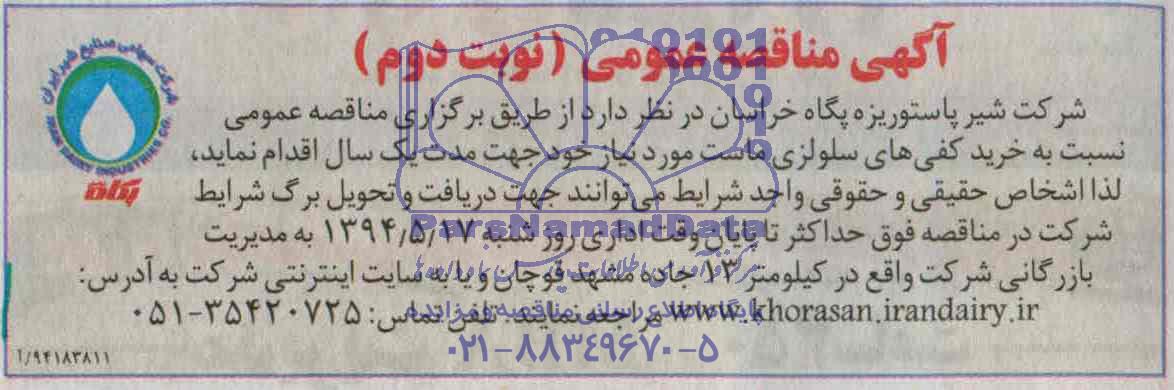 آگهی مناقصه عمومی (نوبت دوم)
شرکت شیر پاستوریزه پگاه خراسان در نظر دارد از طریق برگزاری مناقصه عمومی
نسبت به خرید کفی‌های سلولزی ماست مورد نیاز خود جهت مدت یک سال اقدام نماید،
لذا اشخاص حقیقی و حقوقی واجد شرایط می‌توانند جهت دریافت و تحویل برگ شرایط
شرکت در مناقصه فوق حداکثر تا پایان وقت اداری روز شنبه ۱۳۹۴/۵/۱۷ به مدیریت
بازرگانی شرکت واقع در کیلومتر ۱۳ جاده مشهد قوچان و یا به سایت اینترنتی شرکت به آدرس:
www.khorasan.irandairy.ir مراجعه نمایند. تلفن تماس: ۳۵۴۲۰۷۲۵-۰۵۱
۹۴۱۸۳۸۱۱/آ
شرکت سهامی صنایع شیر ایران
IRAN DAIRY INDUSTRIES CO.
پگاه
ParsNamadData
پایگاه اطلاع رسانی مناقصه و مزایده
۰۲۱-۸۸۳۴۹۶۷۰-۵